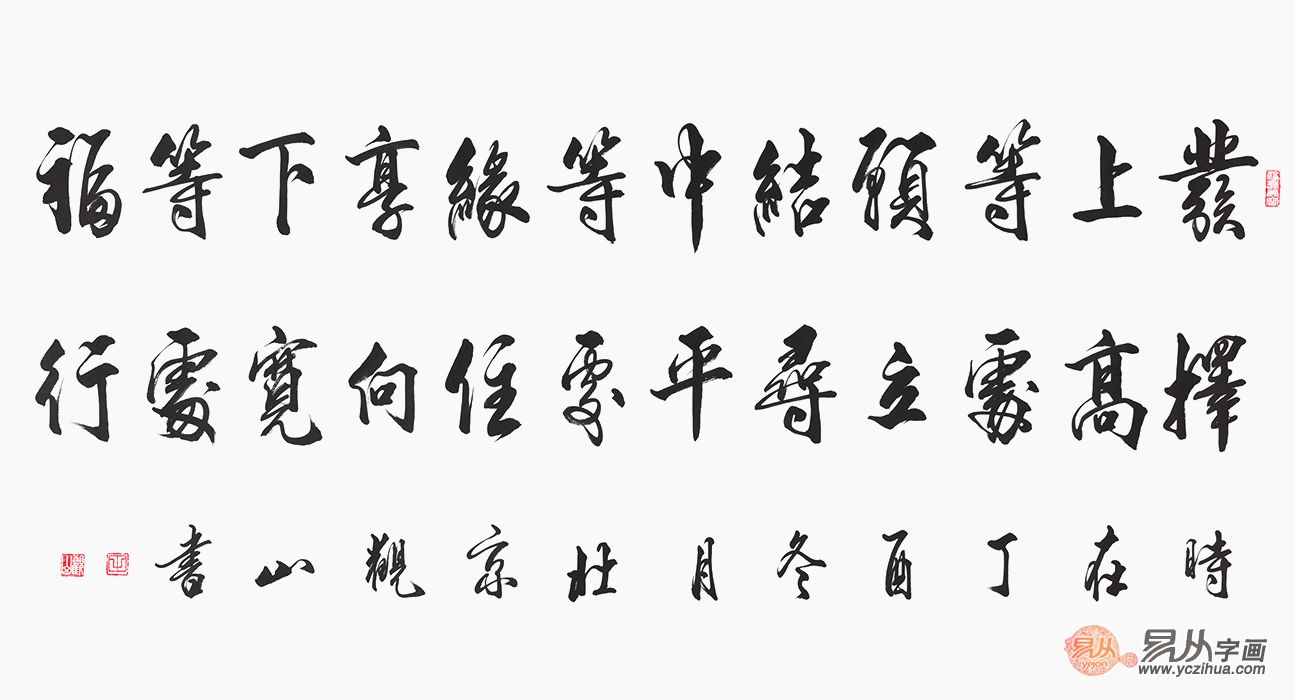 發上等願結中等緣享下等福
擇高處立尋平處住向寬處行
時在丁酉冬月於京觀山書
易从字画
www.yczihua.com